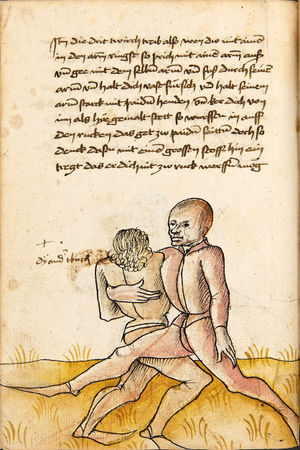 Itm die drit twirch treib also wen du mit aine
in den arm ringst so prich mit aine arm auß
vn̄ gee mit dem selbn arm vn̄ fuß durch seine
arm vn̄ halt dich vast fürsich vn̄ halt seinen
arm starck mit paiden henden vn̄ ker dich von
im als hie gemalt stett so wirfstu in auff
den rucken das get zu paidn seittn doch so
mit aine grossen stoß hin ein
das er dich nit zu ruck werffn mög